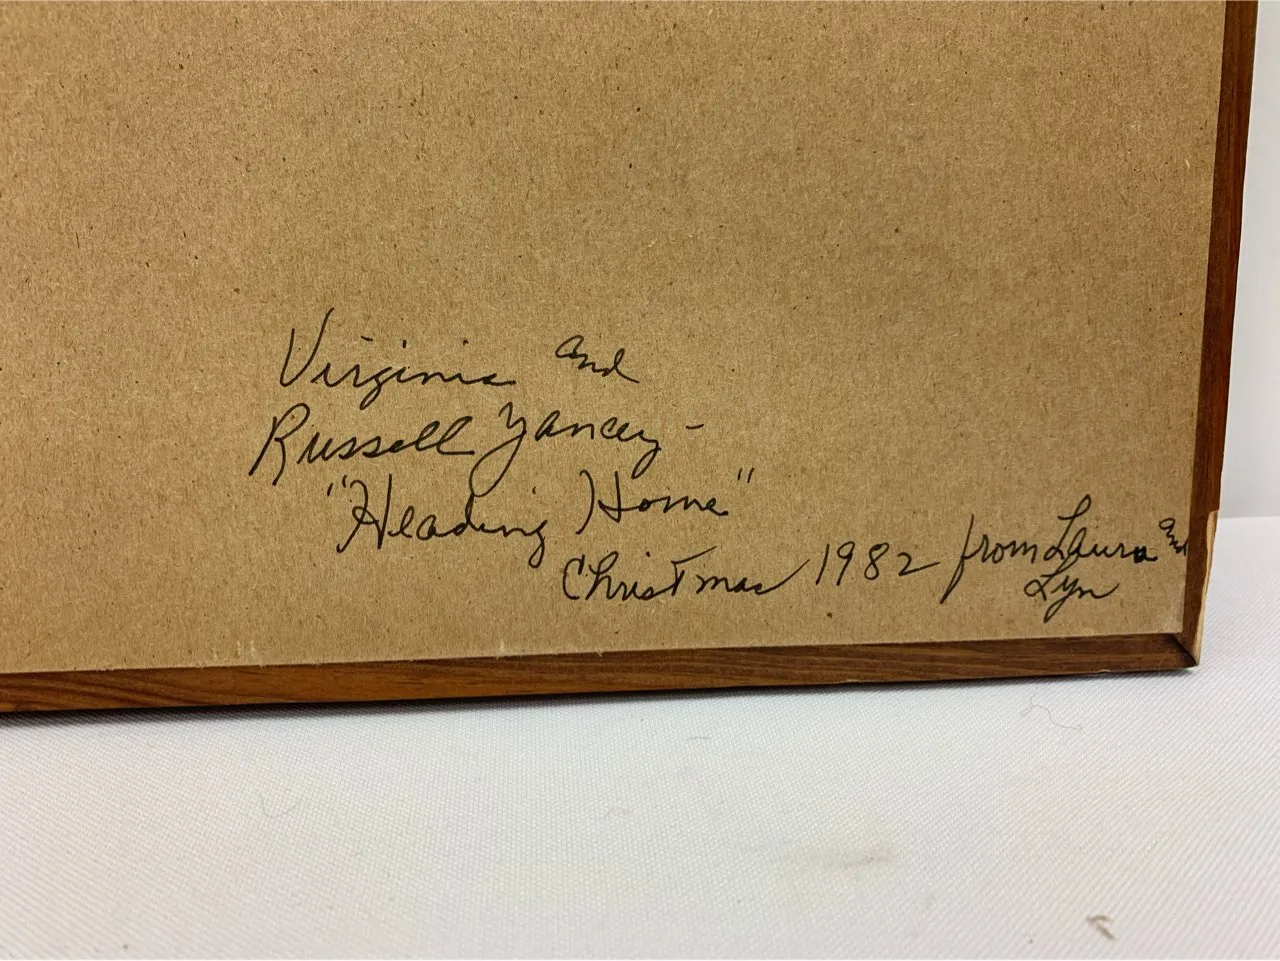 Virginia and
Russell Yancey -
"Heading Home"
Christmas 1982 from Laura and
Lyn